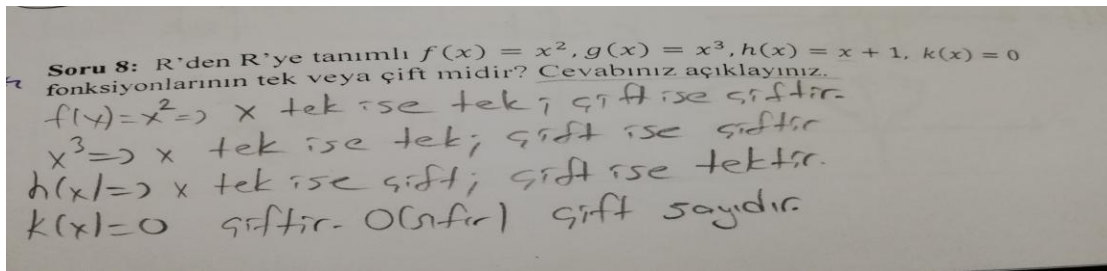 Soru 8: R'den R'ye tanımlı f(x) = x², g(x) = x³, h(x) = x + 1, k(x) = 0
fonksiyonlarının tek veya çift midir? Cevabınız açıklayınız.
f(x)=x² => x tek ise tek; çift ise çiftir.
x³ => x tek ise tek; çift ise çiftir
h(x) => x tek ise çift; çift ise tektir.
k(x)=0 çiftir. 0(sıfır) çift sayıdır.